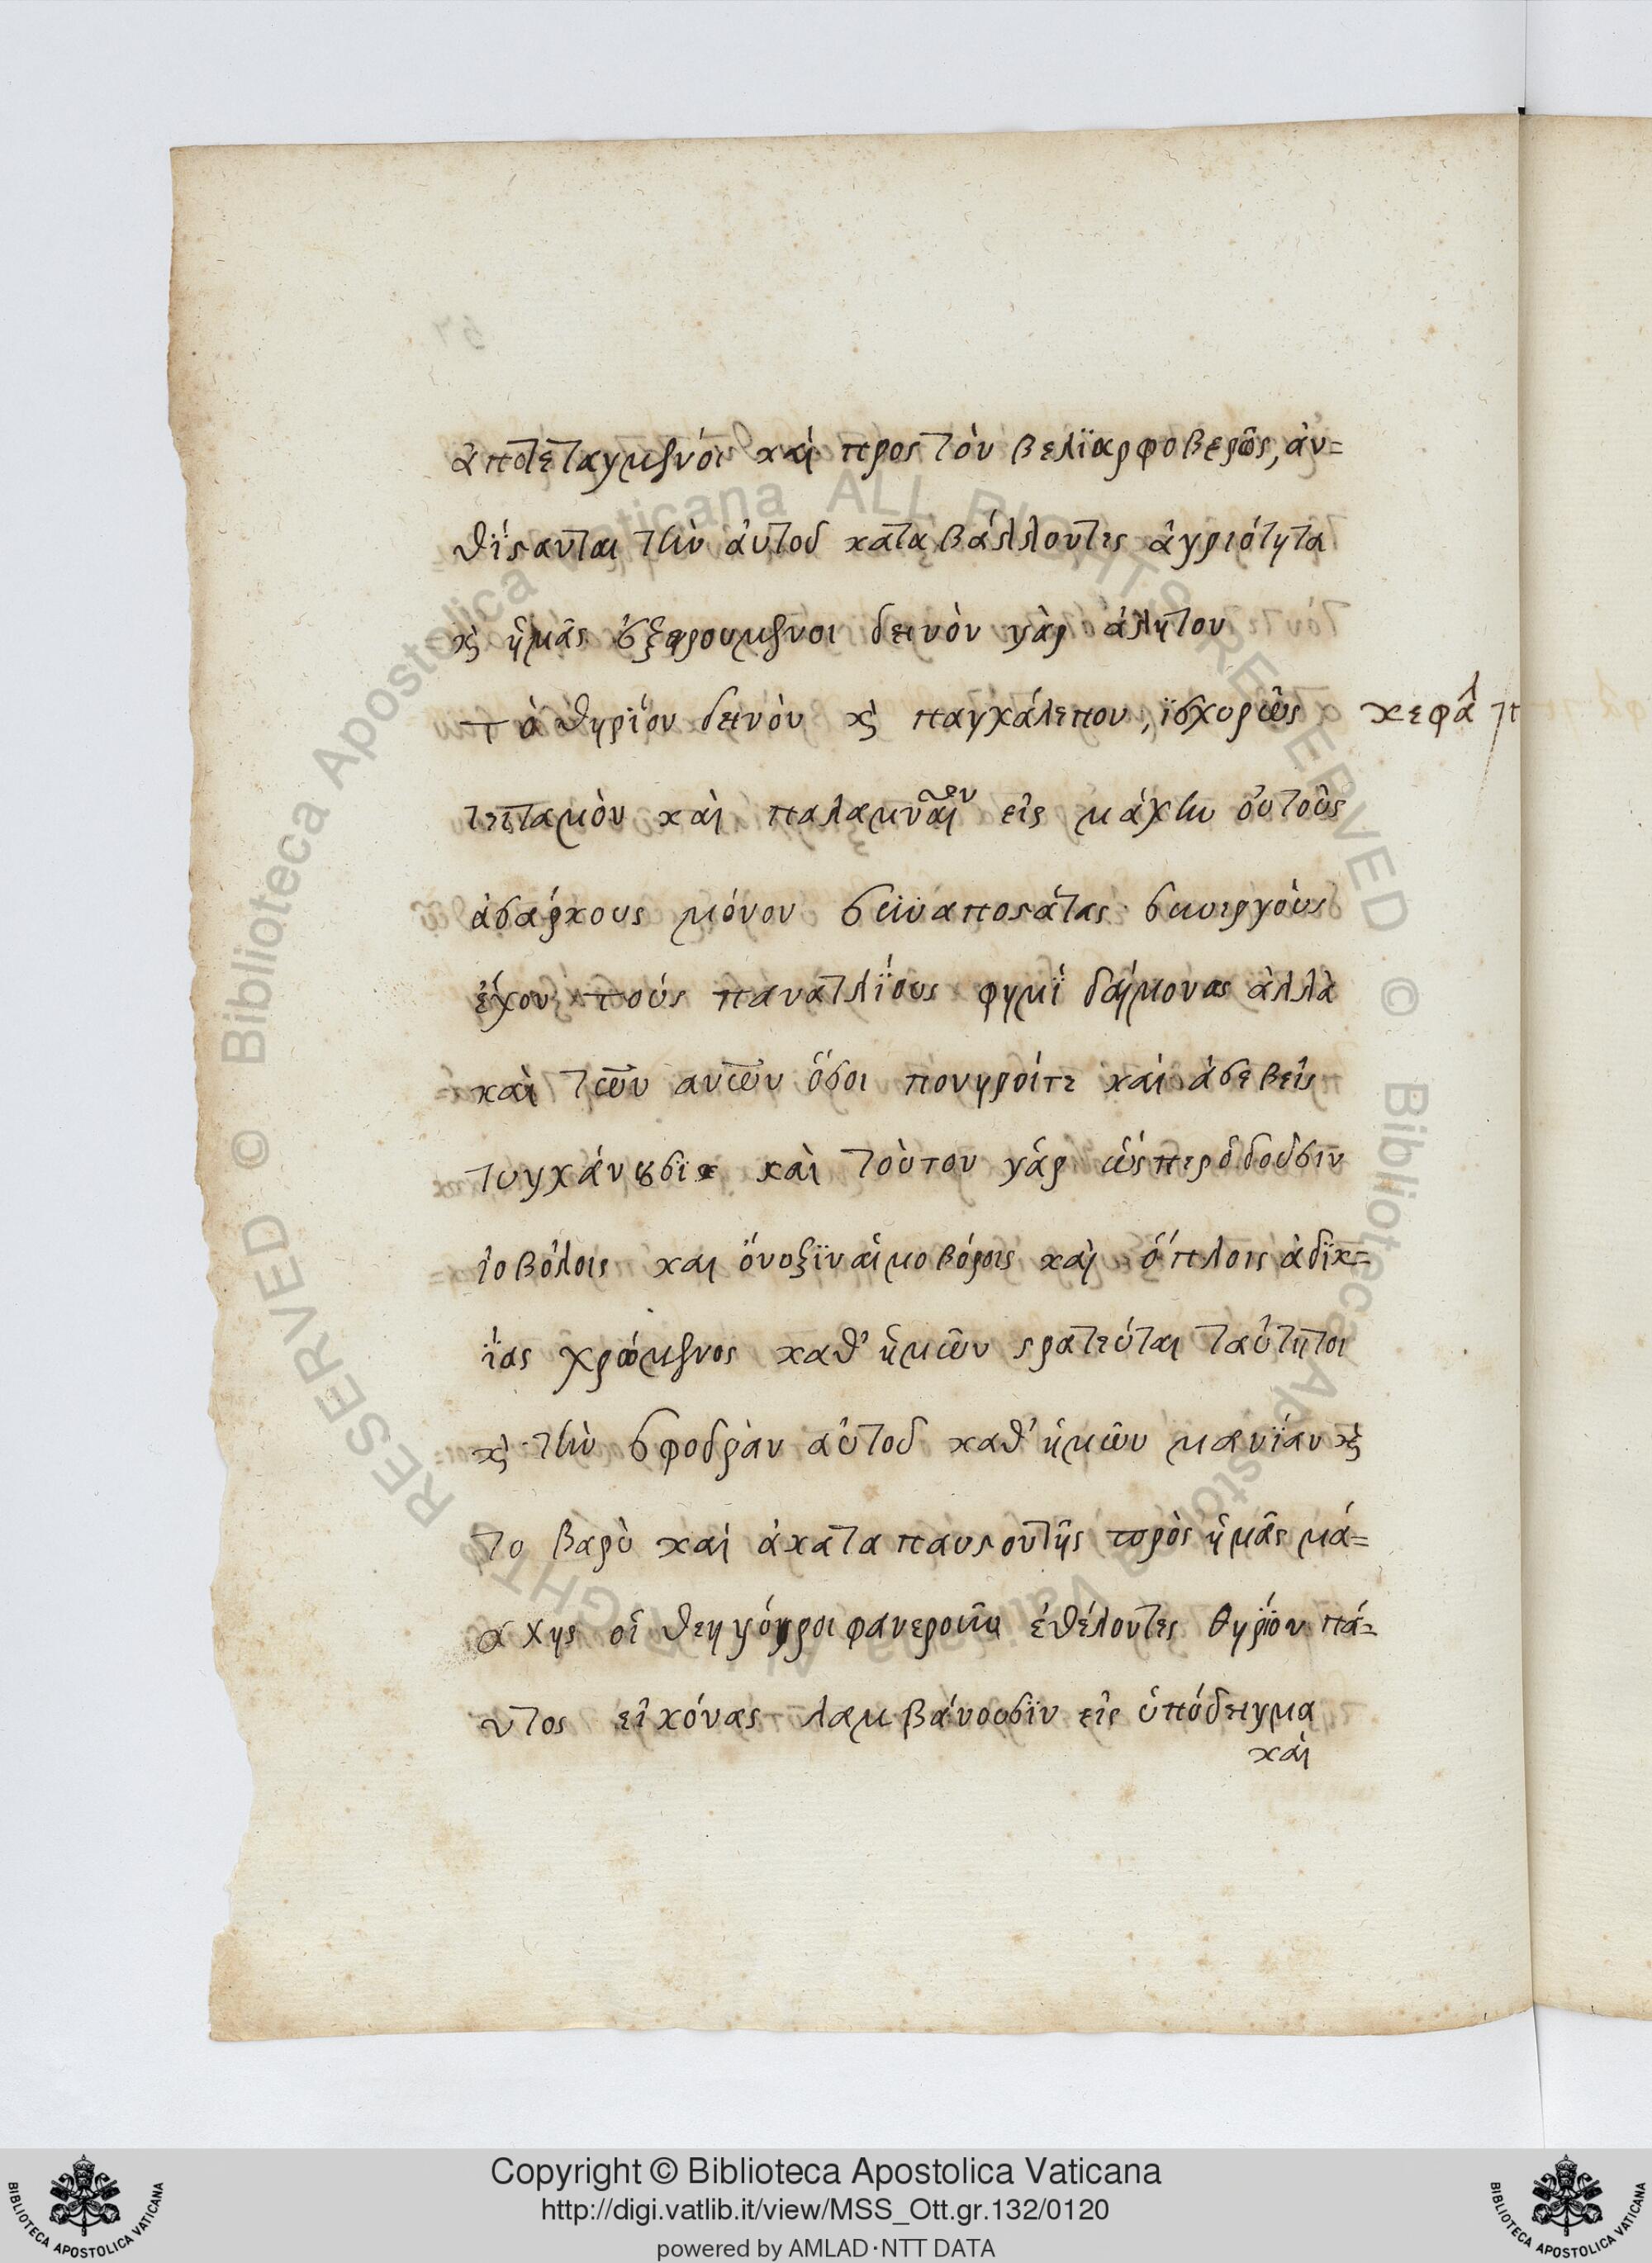 ἀποτεταγμένοι καὶ προς τὸν βελϊαρ φοβερῶς, ἀν=
θΐσανται τὴν ἀυτοῦ καταβάλλοντες ἀγριότητα
κ̀ ἡμᾶς ἐξαιρουμενοι δεινὸν γὰρ ἀλητον
το θηρΐον δεινὸν κ̀ παγχάλεπον, ϊσχυρῶς κεφαλ
καὶ παλαμναῖον εἰς μάχην ὀυτοῦς
ἀσάρκους μόνον συναποστάτας συνεργοὺς
ἔχον τοὺς παναθλΐους φημΐ δαίμονας ἀλλὰ
καὶ τῶν ανων ὅσοι πονηροίτε καὶ ἀσεβεῖς
τυγχάνουσϊ καὶ τοὺτον γὰρ ὥσπερ ὀδοῦσιν
ἰοβόλοις και ὄνυξϊν αἱμοβόροις καὶ ὅπλοις ἀδϊκ=
ΐας χρώμενος καθ' ἡμῶν στρατεύται ταύτητοι
κ̀ τὴν σφοδρὰν αὐτοῦ καθ' ἡμῶν μανΐαν κ̀
το βαρὺ καὶ ἀκαταπαυστον τῆς πρὸς ἡμᾶς μά=
χης οἱ θεηγόροι φανεροῦν ἐθέλοντες θηρΐον πά=
ντος εἰκόνας λαμβάνουσϊν εἰς ὑπόδειγμα
καὶ
Copyright © Biblioteca Apostolica Vaticana
http://digi.vatlib.it/view/MSS_Ott.gr.132/0120
powered by AMLAD·NTT DATA